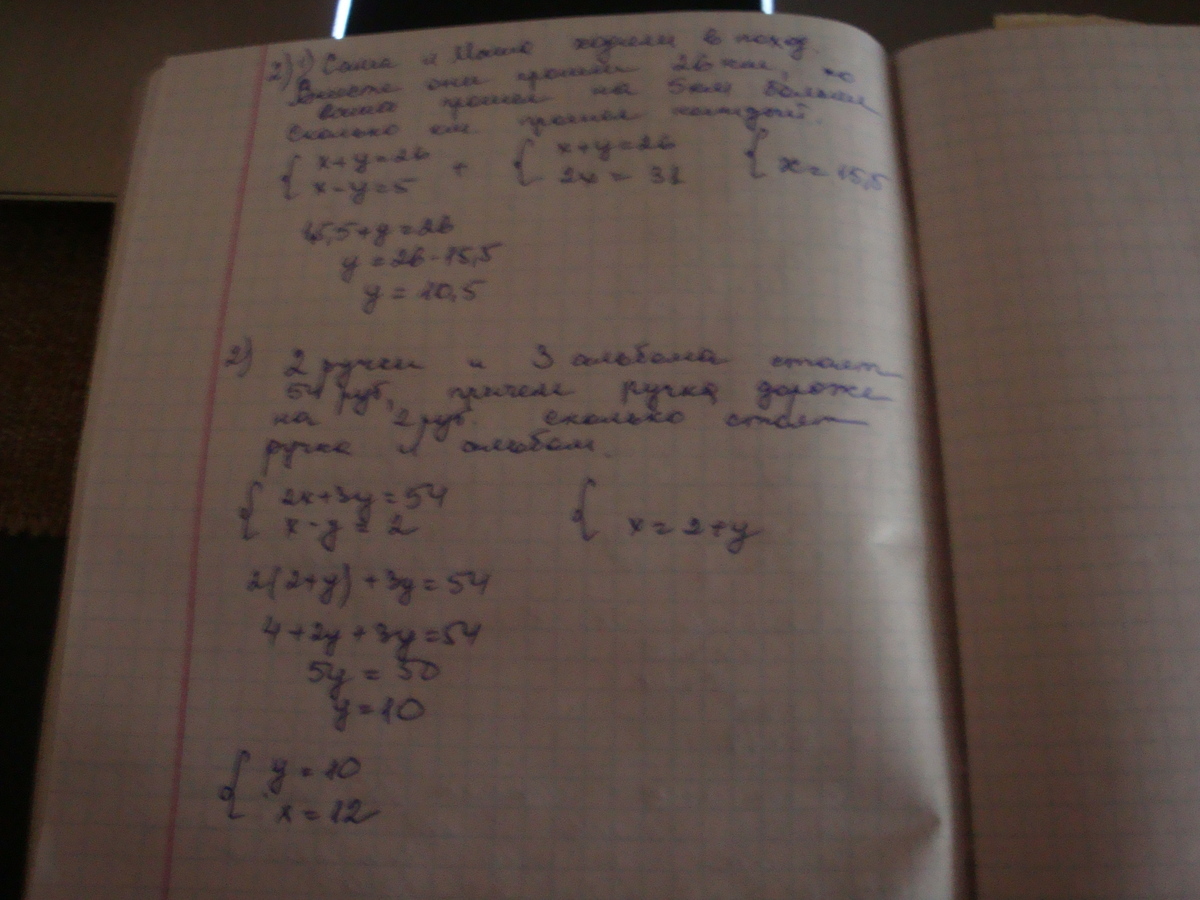 2) 1) Саша и Маша ходили в поход.
Вместе они прошли 26 км, но
Саша прошел на 5 км больше
Сколько км. прошел каждый.
{ x+y=26 + { x+y=26 { x=15,5
x-y=5 2x=31
15,5+y=26
y=26-15,5
y=10,5
2) 2 ручки и 3 альбома стоят
54 руб, причем ручка дороже
на 2 руб. сколько стоят
ручка и альбом.
{ 2x+3y=54 {
x-y=2 x=2+y
2(2+y)+3y=54
4+2y+3y=54
5y=50
y=10
{ y=10
x=12